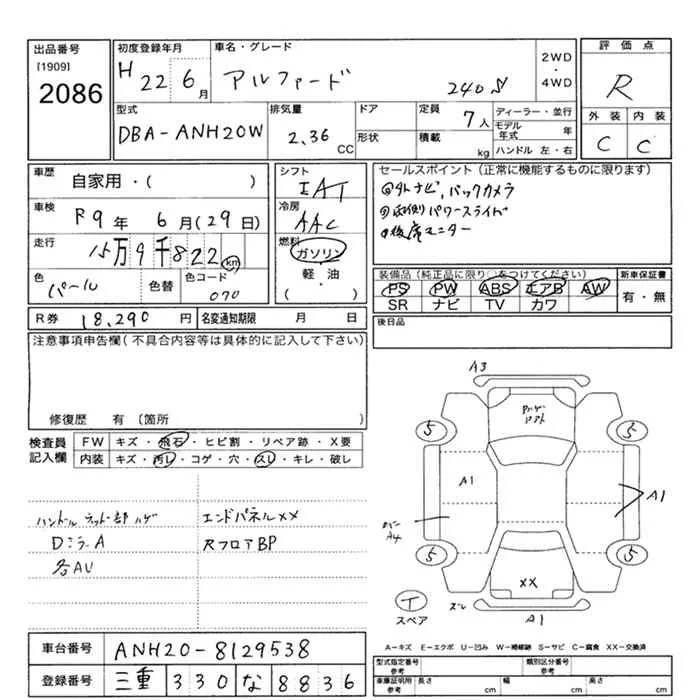 出品番号
[1909]
2086
初度登録年月
H 22 6月
車名・グレード
アルファード 240 S
2WD
・
4WD
評価点
R
外装 内装
C C
型式
DBA-ANH20W
排気量
2.36 CC
ドア
形状
定員
7人
積載
kg
ディーラー・並行
モデル年式 年
ハンドル 左・右
車歴
自家用・( )
車検
R9年 6月(29日)
走行
15万9千822km
色
パール
色替
色コード
070
シフト
IAT
冷房
AAC
燃料
ガソリン
軽・油
( )
セールスポイント(正常に機能するものに限ります)
バックカメラ
パワースライド
後席モニター
装備品(純正品に限り○をつけてください)
PS PW ABS エアB AW
SR ナビ TV カワ
新車保証書
有・無
R券 18,290円
名変通知期限 月 日
後日品
注意事項申告欄(不具合内容等は具体的に記入して下さい)
修復歴 有(箇所 )
検査員
記入欄
FW キズ・飛石・ヒビ割・リペア跡・X要
内装 キズ・汚レ・コゲ・穴・スレ・キレ・破レ
ハンドル ウッド部 ハゲ
Dミラー A
各AU
エンドパネルXX
RフロアBP
A3
5
5
A1
A1
A4
5
5
XX
T
スペア
A1
A-キズ E-エクボ U-凹み W-補修跡 S-サビ C-腐食 XX-交換済
車台番号 ANH20-8129538
登録番号 三重 330 な 8836
型式指定番号
参考
類別区分番号
参考
車庫証明用
参考
長さ cm
幅 cm
高さ cm